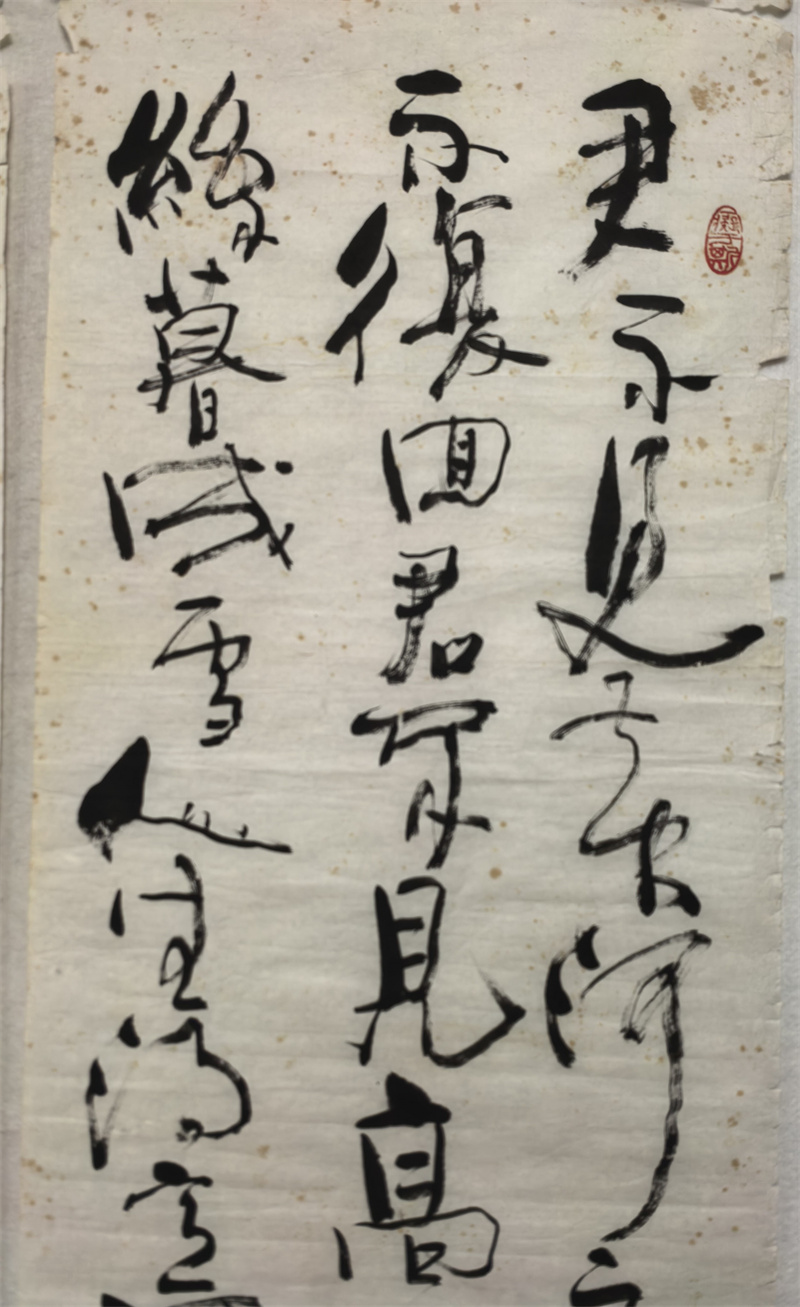 君不見黃河之
不復回君不見高
絲暮成雪人生得意